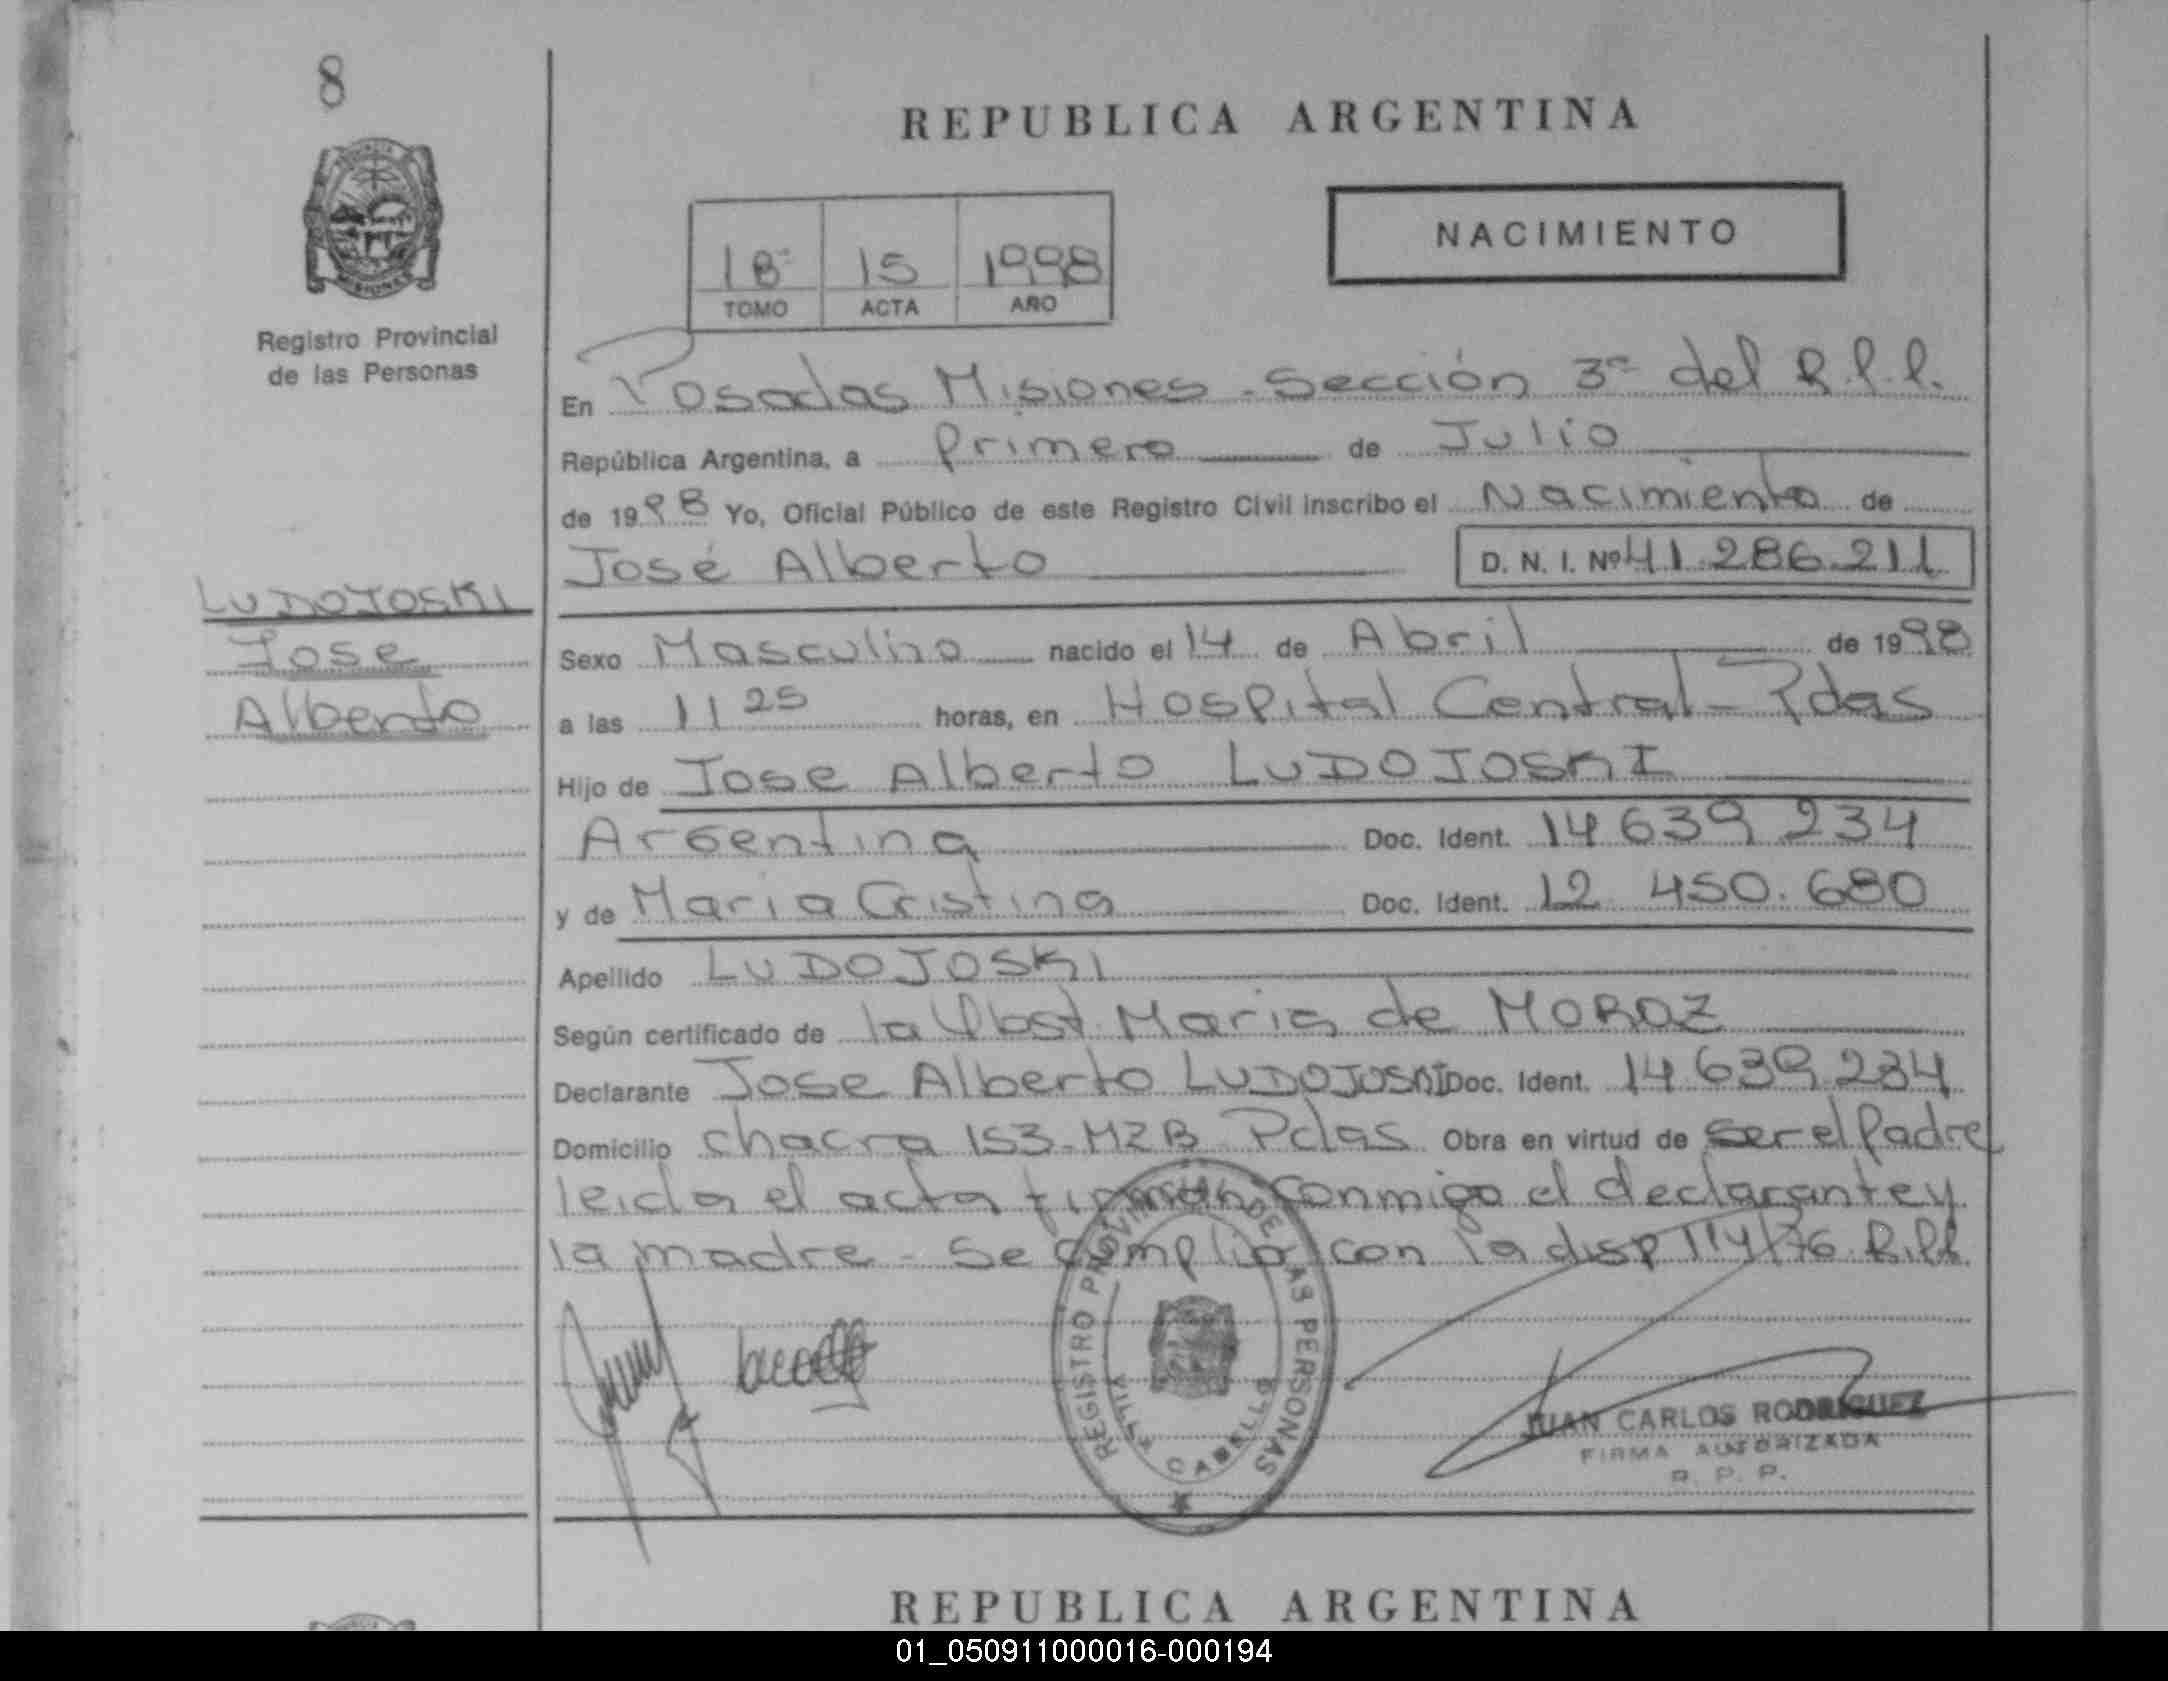 8
REPUBLICA ARGENTINA
NACIMIENTO
18ª 15 1998
TOMO ACTA AÑO
Registro Provincial
de las Personas
En Posadas Misiones - Sección 3ª del R.P.P.
República Argentina, a Primero de Julio
de 1998 Yo, Oficial Público de este Registro Civil inscribo el Nacimiento de
José Alberto D. N. I. Nº 41.286.211
LUDOJOSKI
Jose
Alberto
Sexo Masculino nacido el 14 de Abril de 1998
a las 11 25 horas, en Hospital Central - Pdas
Hijo de Jose Alberto LUDOJOSKI
Argentina Doc. Ident. 14 639 234
y de Maria Cristina Doc. Ident. 12 450.680
Apellido LUDOJOSKI
Según certificado de la Obst. Maria de MOROZ
Declarante Jose Alberto LUDOJOSKI Doc. Ident. 14 639 234
Domicilio chacra 153 - MZ B Pdas Obra en virtud de ser el Padre
leida el acta firman conmigo el declarante y
la madre - Se cumplio con la disp 114/76 R.P.P.
REGISTRO PROVINCIAL DE LAS PERSONAS
VILLA CABELLO
JUAN CARLOS RODRIGUEZ
FIRMA AUTORIZADA
R. P. P.
REPUBLICA ARGENTINA
01_050911000016-000194